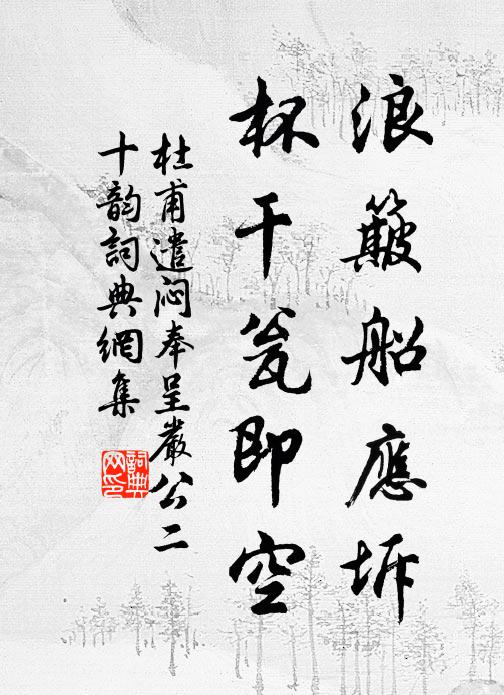 浪簸船應坼
杯干瓮即空
杜甫遣闷奉呈嚴公二
十韵詞典網集
詞典網印